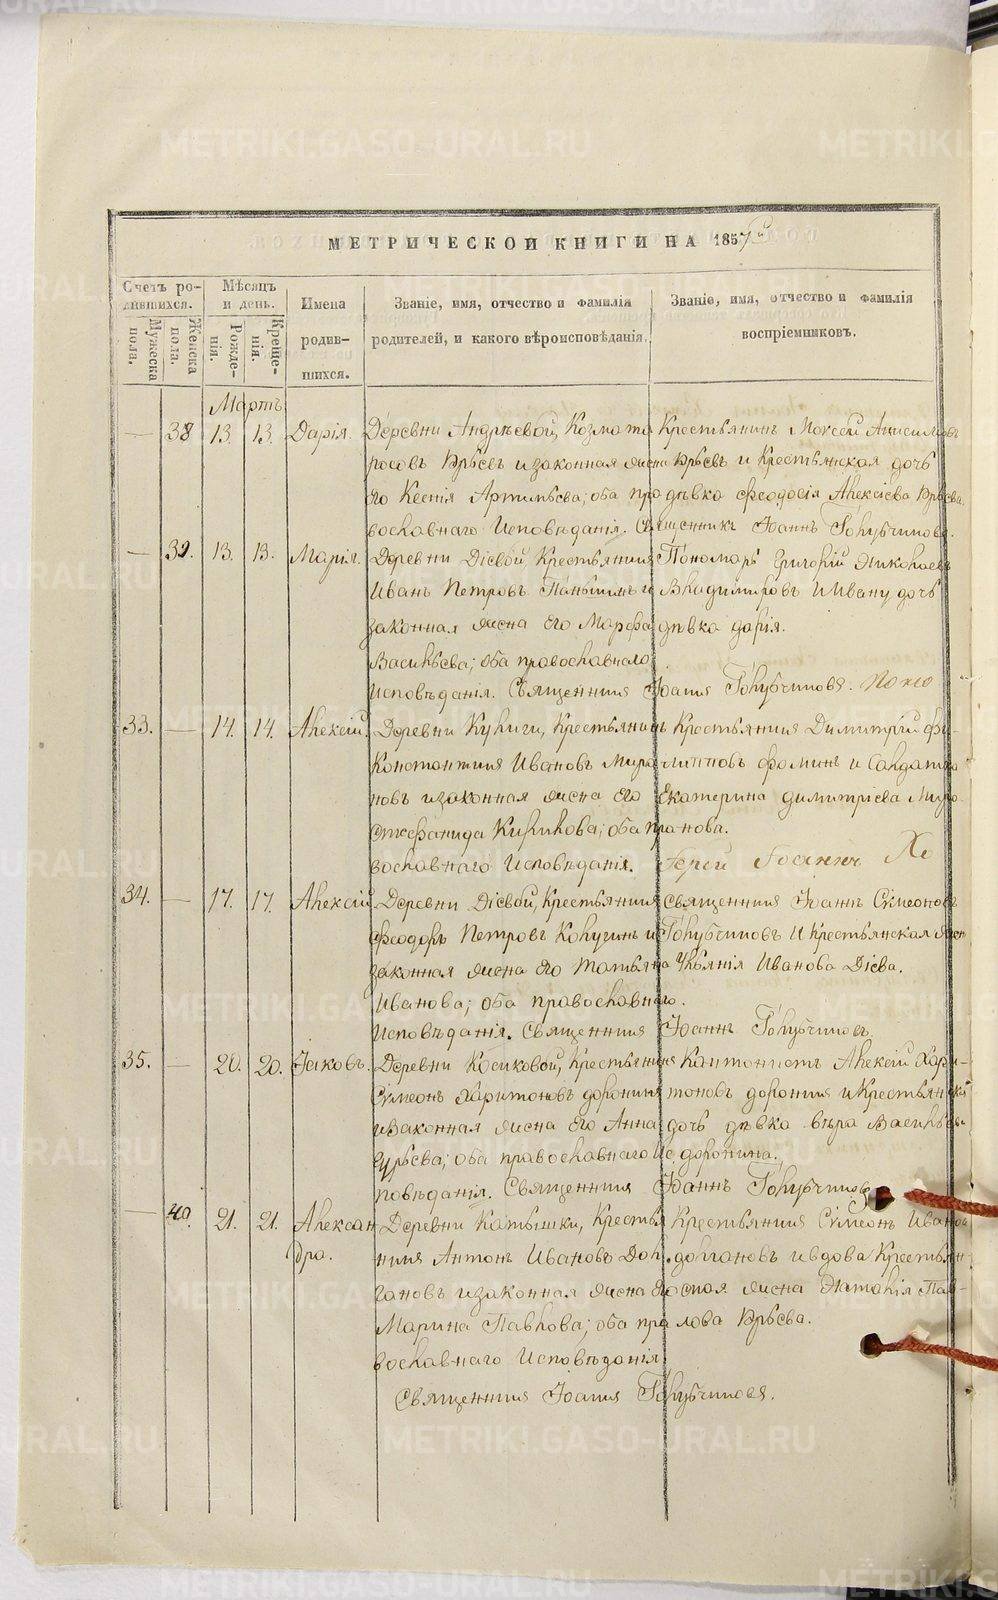 МЕТРИЧЕСКОЙ КНИГИ НА 1857й
Счетъ ро-
дившихся.
Мѣсяцъ
и день.
Имена
родив-
шихся.
Званіе, имя, отчество и фамилія
родителей, и какого вѣроисповѣданія.
Званіе, имя, отчество и фамилія
воспріемниковъ.
Мужеска
пола.
Женска
пола.
Рожде-
нія.
Креще-
нія.
Мартъ
— 38 13. 13. Дарія.
Деревни Андрѣевой, Козма
росовъ и законная жена
его Ксенія Артимьева; оба пра
вославнаго Исповѣданія. Священникъ Іоаннъ Голубчиковъ.
Крестьянинъ
и Крестьянская дочь
дѣвка Феодосія Алексіева
— 39. 13. 13. Марія.
Деревни Діевой, Крестьянинъ
Иванъ Петровъ Паньшинъ и
законная жена его Марфа
Васильева; оба православнаго
Исповѣданія. Священникъ Іоаннъ Голубчиковъ.
Пономарь Григорій Николаевъ
Владимировъ и Ивану дочь
дѣвка Дарія.
33. — 14. 14. Алексій.
Деревни Кулиги, Крестьянинъ
Константинъ Ивановъ Миро
новъ и законная жена его
Стефанида Кирикова; оба пра
вославнаго Исповѣданія.
Крестьянинъ Димитрій Фи-
липповъ Фоминъ и Салдатка
Екатерина Димитріева Миро
нова.
34. — 17. 17. Алексій.
Деревни Діевой, Крестьянинъ
Феодоръ Петровъ Колугинъ и
законная жена его Татьяна
Иванова; оба православнаго
Исповѣданія. Священникъ Іоаннъ Голубчиковъ.
Священникъ Іоаннъ Симеоновъ
Голубчиковъ и Крестьянская жен
Ульянія Иванова Діева.
35. — 20. 20. Іаковъ.
Деревни Косиковой, Крестьянинъ
Симеонъ Харитоновъ Доронинъ
и законная жена его Анна
Гурьева; оба православнаго Ис
повѣданія. Священникъ Іоаннъ Голубчиковъ
Кантонистъ Алексій Хари-
тоновъ Доронинъ и Крестьянска
дочь дѣвка Вѣра Васильева
Доронина.
— 40. 21. 21. Алексан
дра.
Деревни Катышки, Крестья
нинъ Антонъ Ивановъ Дол
гановъ и законная жена его
Марина Павлова; оба пра
вославнаго Исповѣданія.
Священникъ Іоаннъ Голубчиковъ.
Крестьянинъ Симеонъ Иванов
Долгановъ и вдова Крестьян
ская жена Наталія Пав-
лова
METRIKI.GASO-URAL.RU